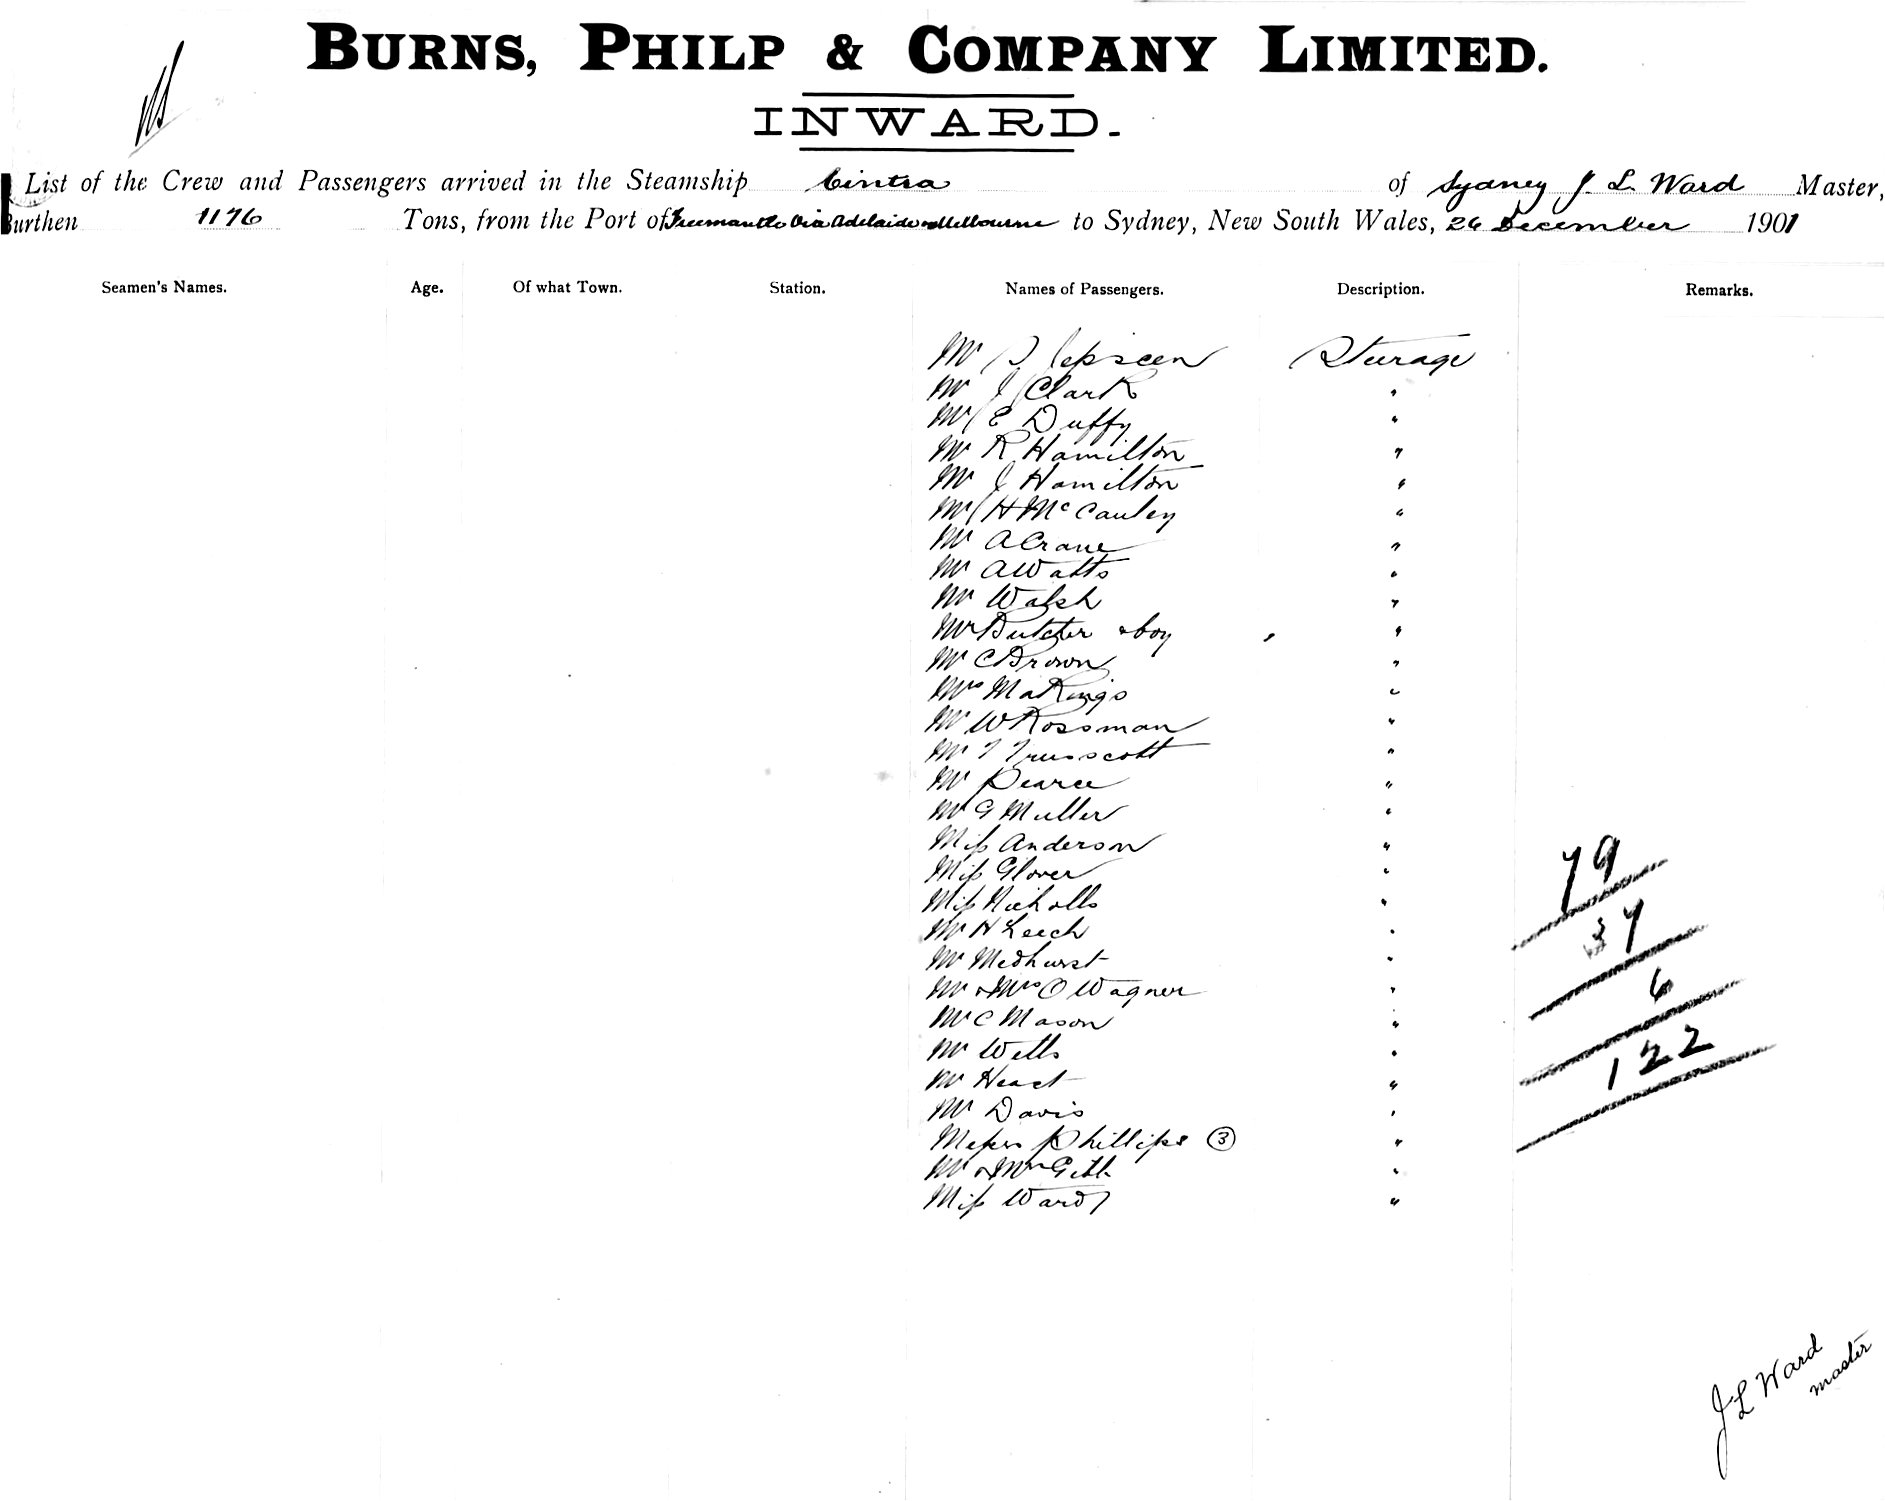 BURNS, PHILP & COMPANY LIMITED.
INWARD.
List of the Crew and Passengers arrived in the Steamship Cintra of Sydney J. L. Ward Master,
Burthen 1176 Tons, from the Port of Freemantle Via Adelaide & Melbourne to Sydney, New South Wales, 26 December 1901
Seamen's Names. Age. Of what Town. Station. Names of Passengers. Description. Remarks.
Mr Jepseen Steerage
Mr J Clark "
Mr E Duffy "
Mr R Hamilton "
Mr J Hamilton "
Mr H McCauley "
Mr A Crane "
Mr A Watts "
Mr Walsh "
Mr Butcher & boy "
Mr C Brown "
Mrs Makings "
Mr W Rossman "
Mr T Trusscott "
Mr Pearce "
Mr G Muller "
Miss Anderson "
Miss Glover "
Miss Nicholls "
Mr H Leech "
Mr Medhurst "
Mr & Mrs O Wagner "
Mr C Mason "
Mr Wells "
Mr "
Mr Davis "
Messrs Phillips (3) "
Mr & Mrs "
Miss Ward "
79
37
6
122
J L Ward
master